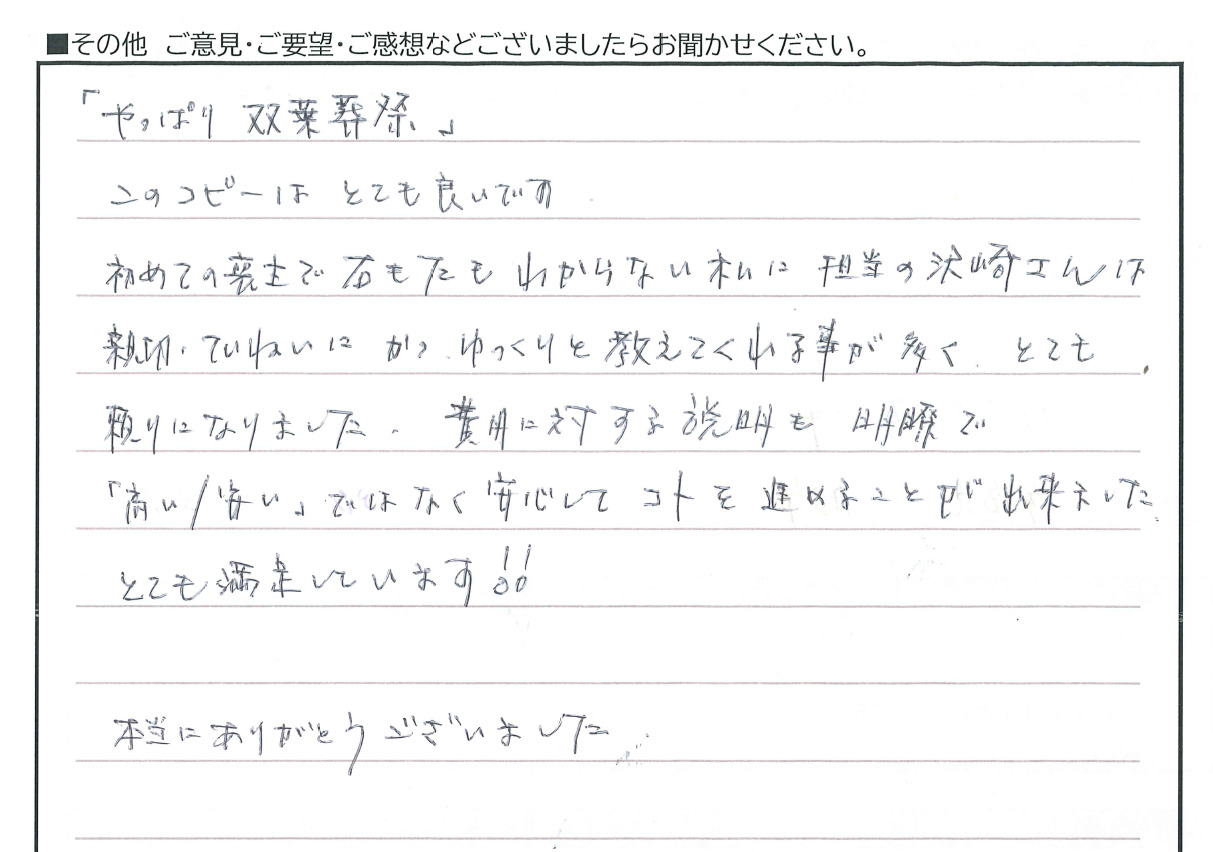 ■その他 ご意見・ご要望・ご感想などございましたらお聞かせください。
「やっぱり 双葉葬祭」
このコピーは とても良いです
初めての喪主で 右も左も わからない 私に 担当の沢崎さんは
親切・ていねいに かつ ゆっくりと 教えてくれる事が 多く とても
頼りになりました。 費用に対する説明も 明瞭で
「高い/安い」ではなく 安心して コトを 進めることが 出来ました
とても満足しています!!
本当にありがとうございました